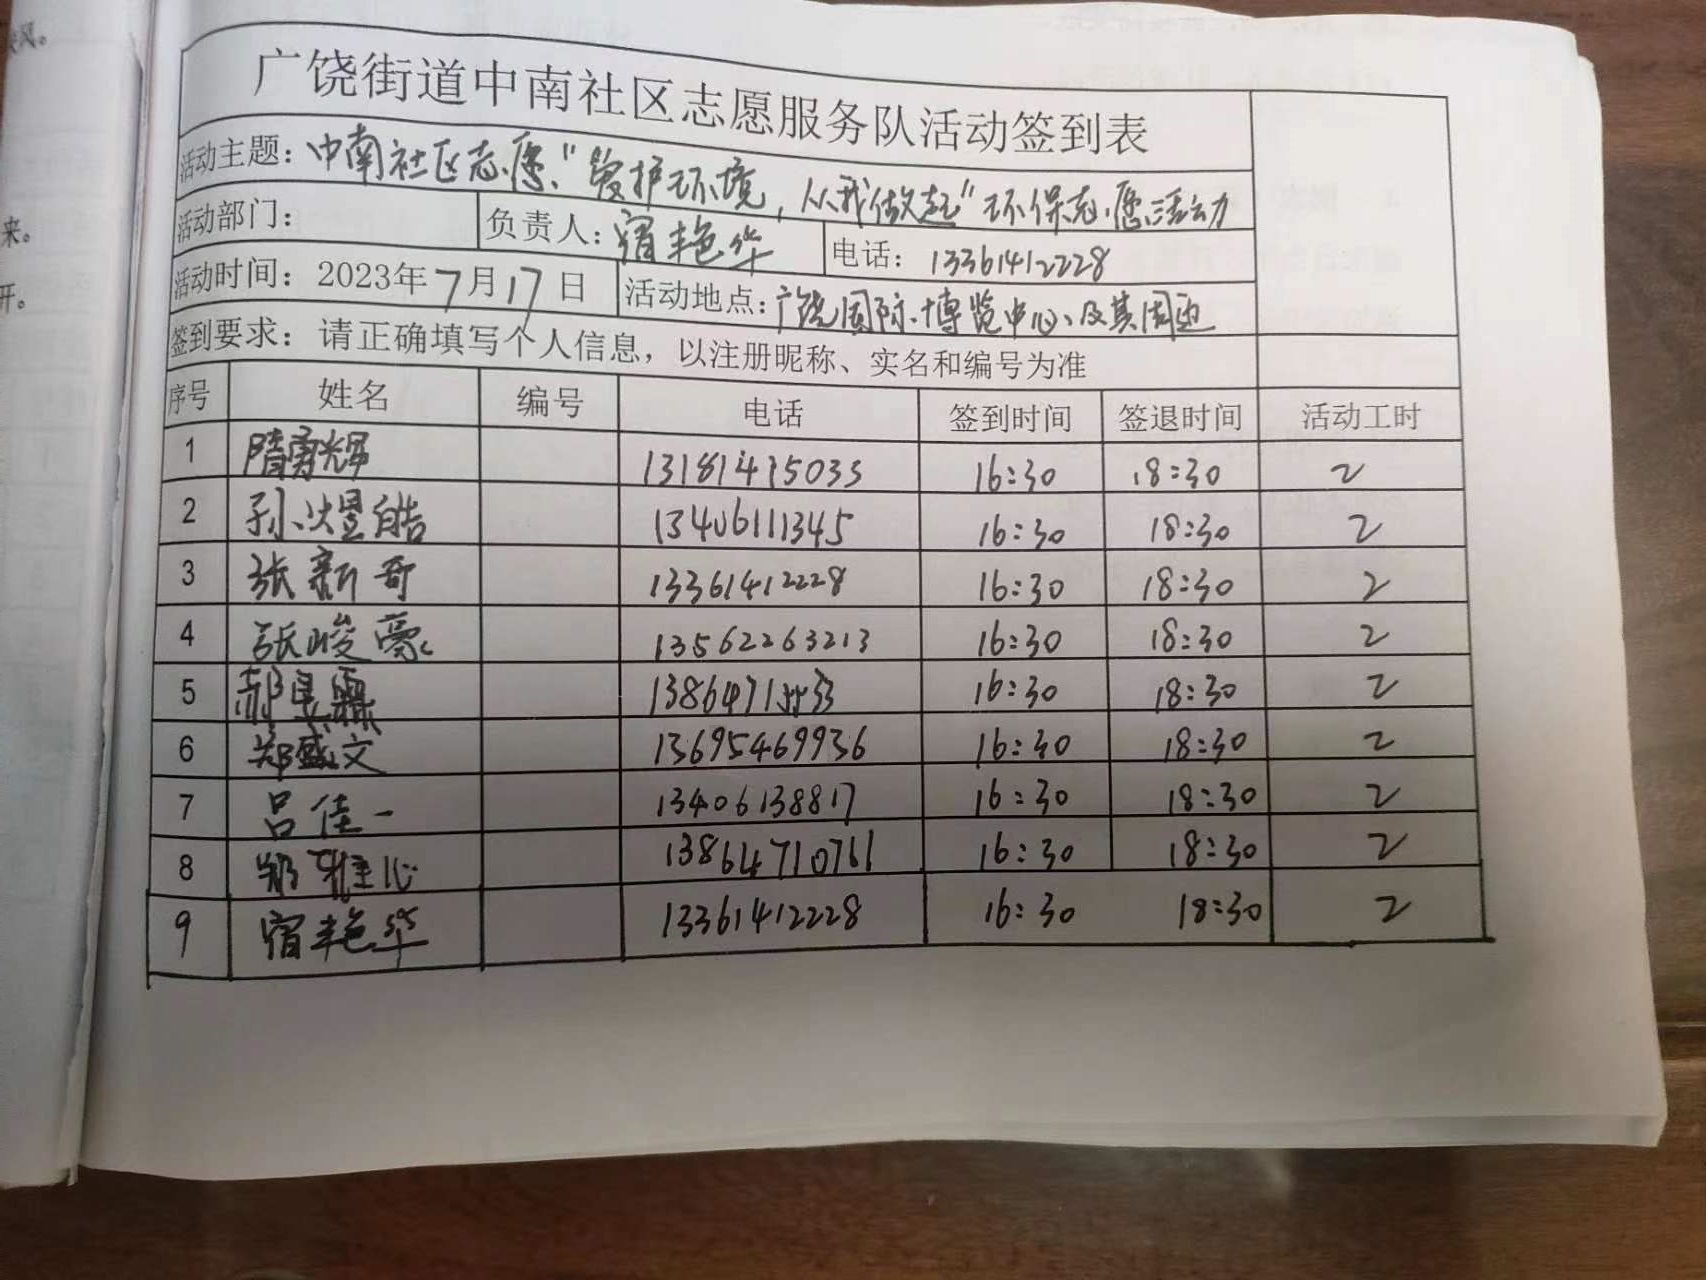 广饶街道中南社区志愿服务队活动签到表
活动主题：中南社区志愿"爱护环境，从我做起"环保志愿活动
活动部门： 负责人：宿艳华 电话：13361412228
活动时间：2023年7月17日 活动地点：广饶国际博览中心及其周边
签到要求：请正确填写个人信息，以注册昵称、实名和编号为准
序号 姓名 编号 电话 签到时间 签退时间 活动工时
1 隋勇辉 13181475033 16:30 18:30 2
2 孙煜皓 13406111345 16:30 18:30 2
3 张新奇 13361412228 16:30 18:30 2
4 张峻豪 13562263213 16:30 18:30 2
5 16:30 18:30 2
6 郑盛文 13695469936 16:30 18:30 2
7 吕佳一 13406138817 16:30 18:30 2
8 13864710761 16:30 18:30 2
9 宿艳华 13361412228 16:30 18:30 2
来。
开。